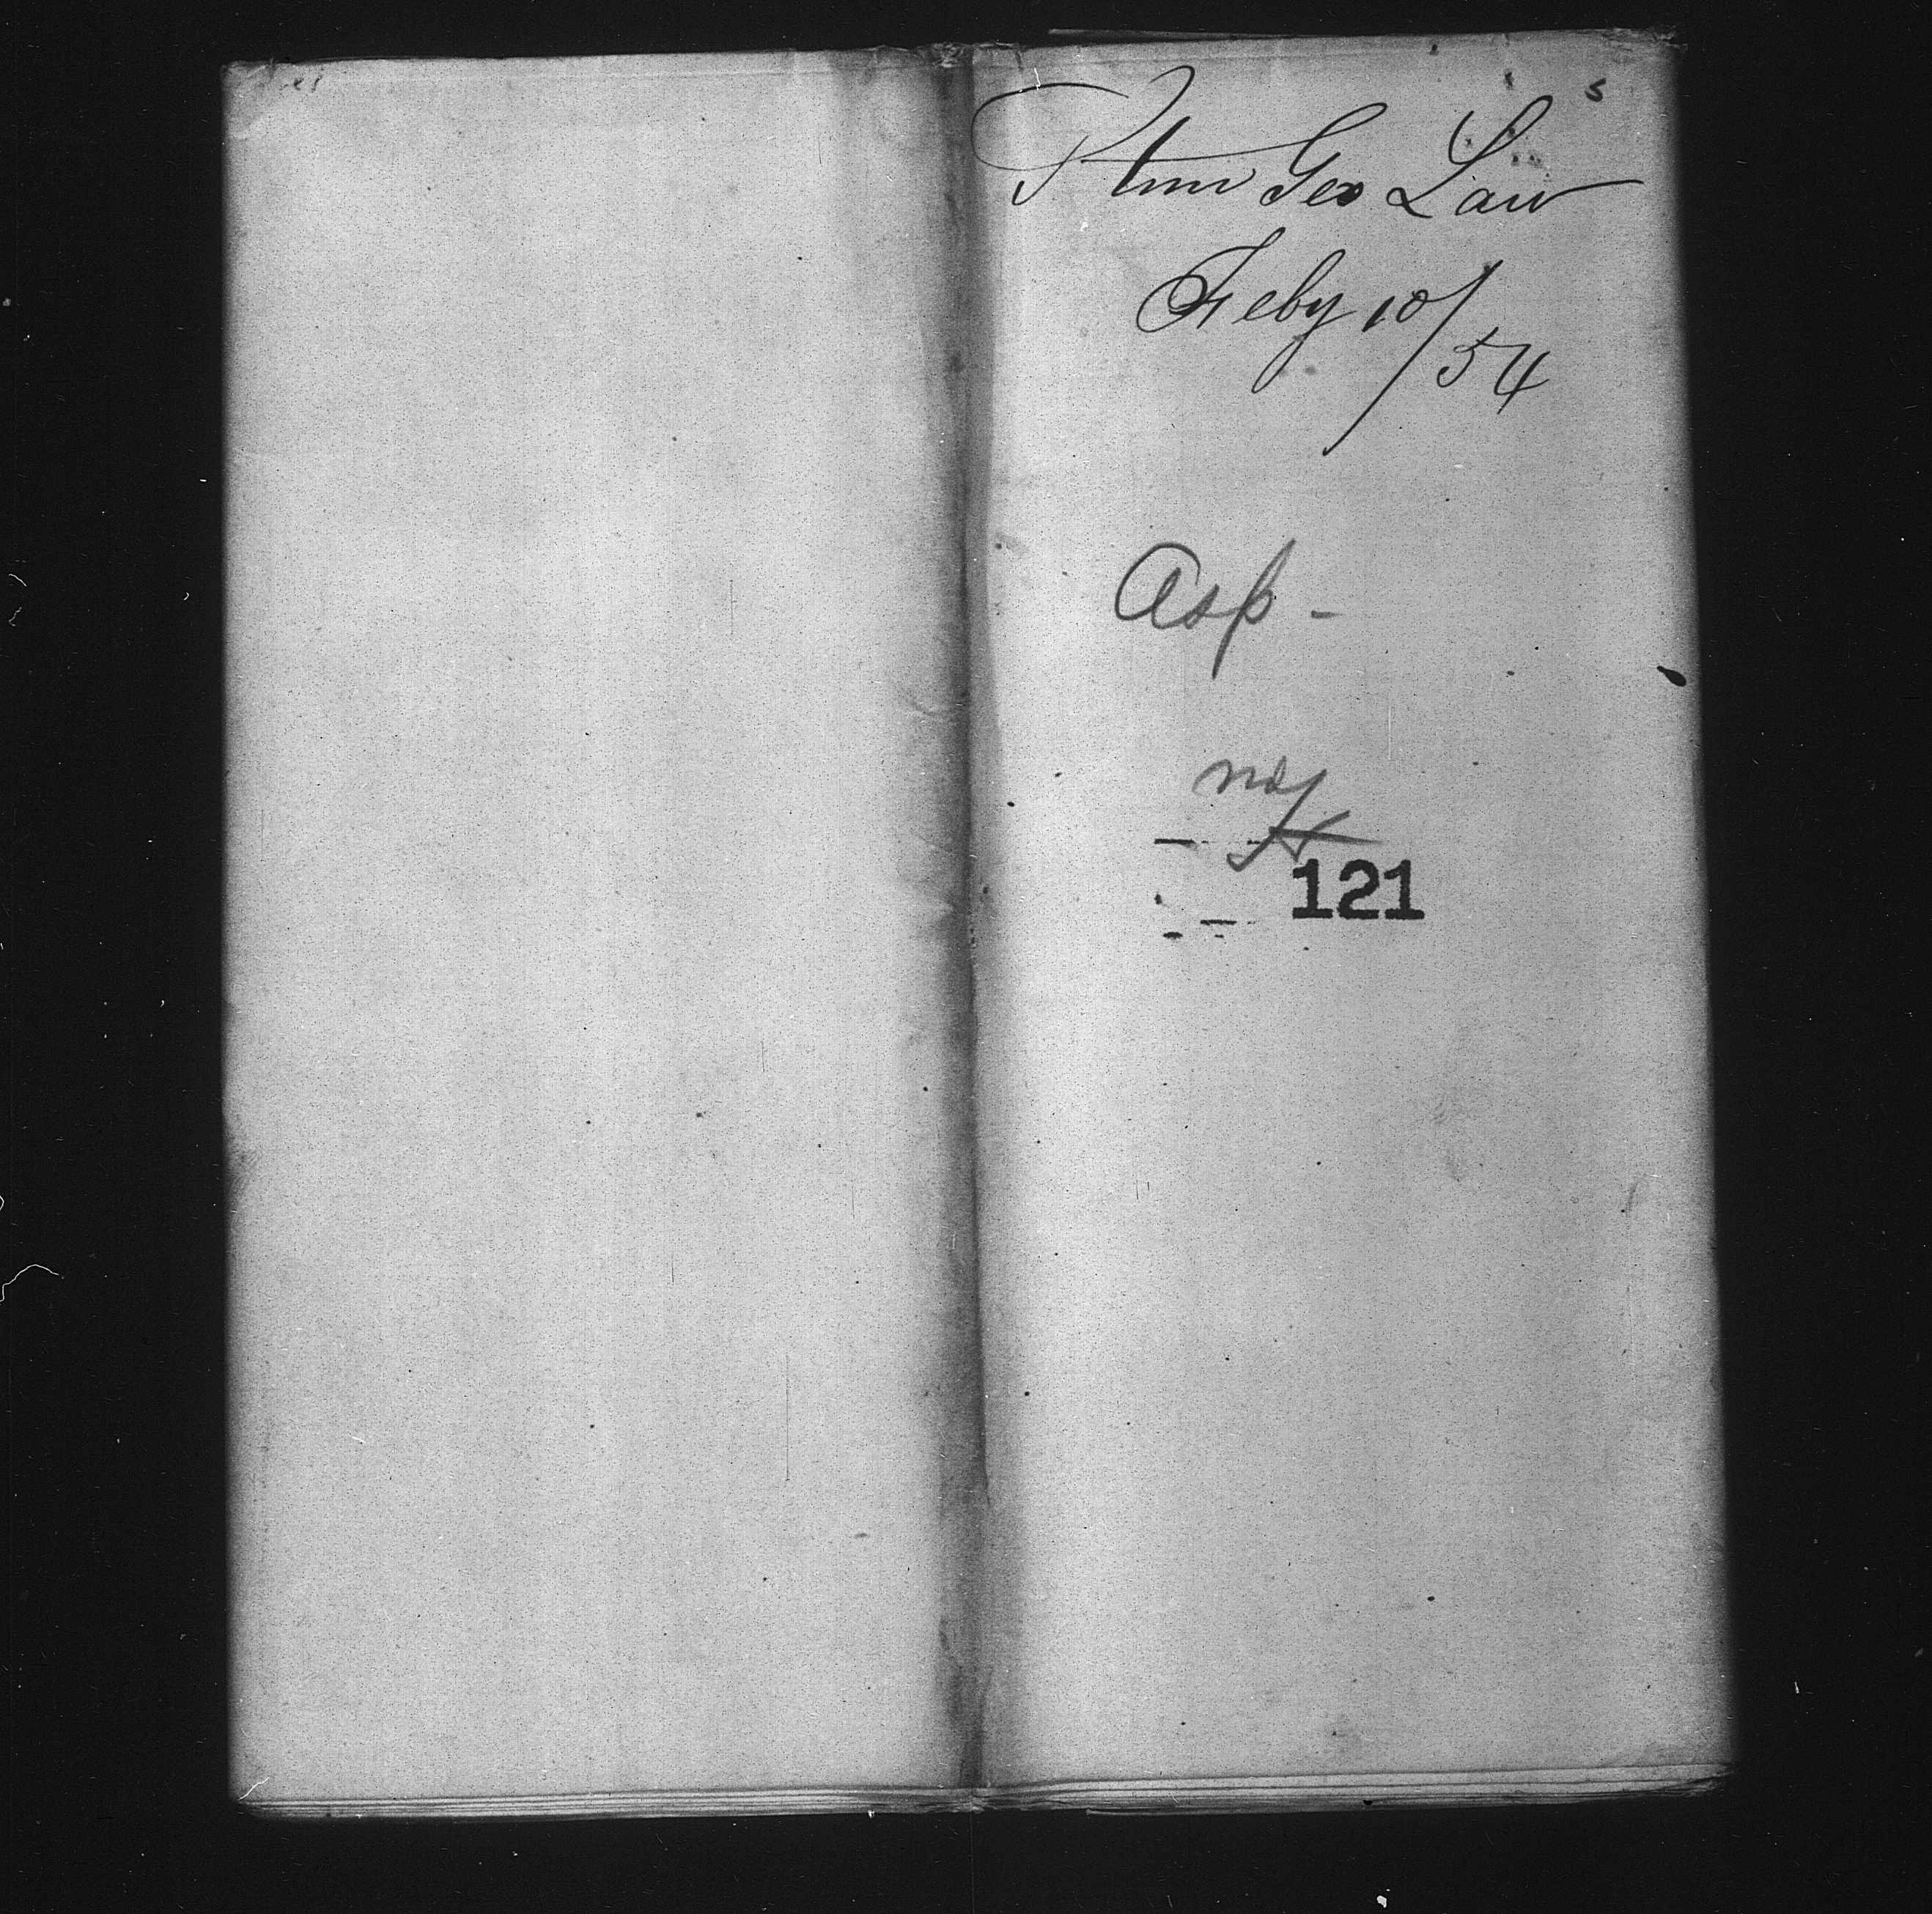 Ptnr Geo Law
Feby 10/54
Asp -
121